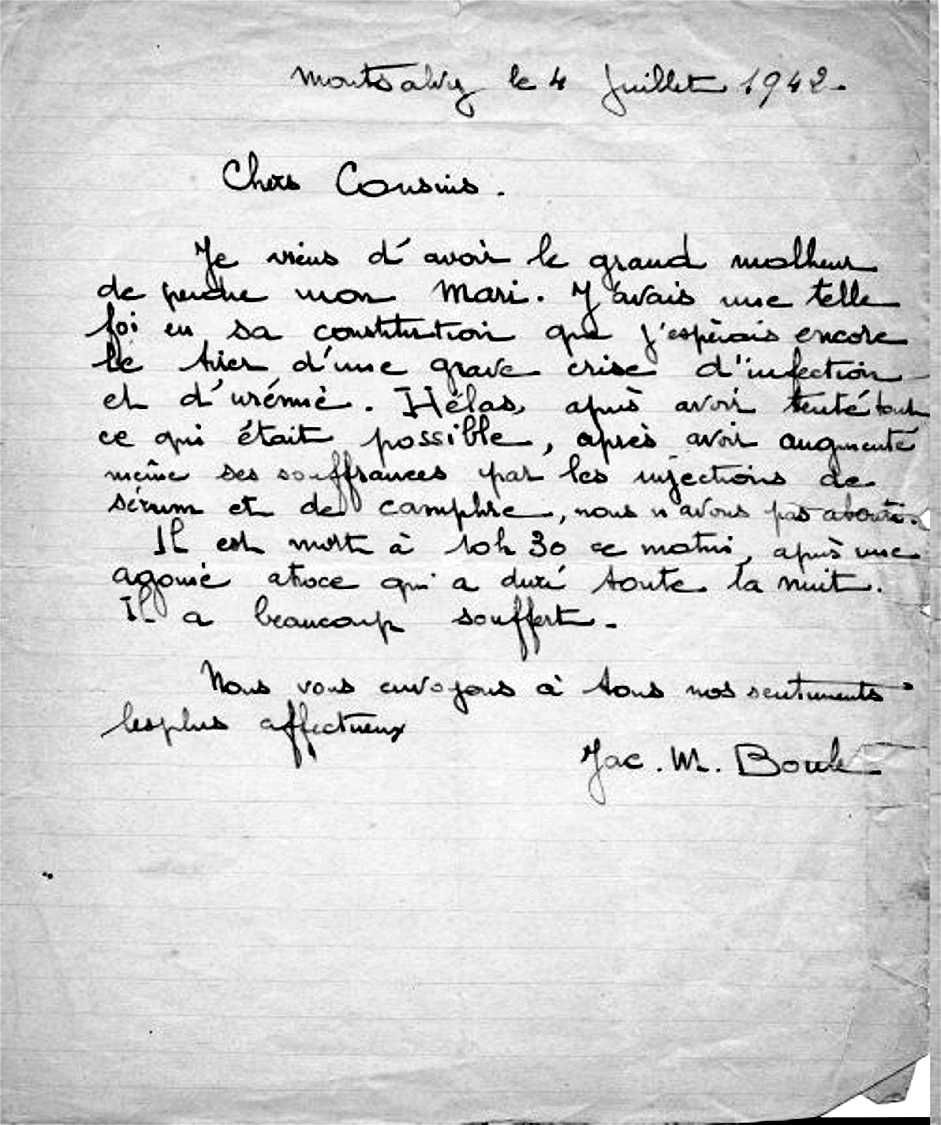 Montsalvy le 4 Juillet 1942.
Chers Cousins.
Je viens d'avoir le grand malheur
de perdre mon Mari. J'avais une telle
foi en sa constitution que j'espérais encore
le tirer d'une grave crise d'infection
et d'urémie. Hélas, après avoir tenté tout
ce qui était possible, après avoir augmenté
même ses souffrances par les injections de
sérum et de camphre, nous n'avons pas abouti.
Il est mort à 10h 30 ce matin, après une
agonie atroce qui a duré toute la nuit.
Il a beaucoup souffert.
Nous vous envoyons à tous nos sentiments
les plus affectueux
Jac. M. Boule